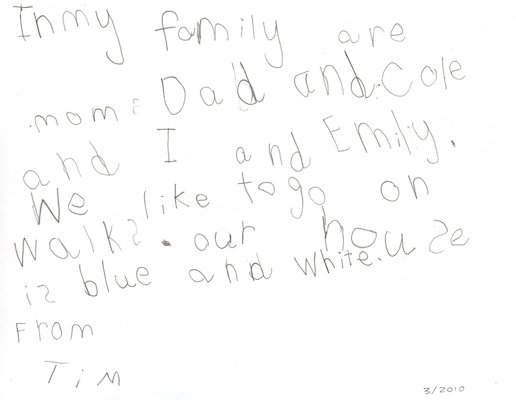 In my family are
mom: Dad and Cole
and I and Emily.
We like to go on
walks. our house
is blue and white.
From
Tim
3/2010